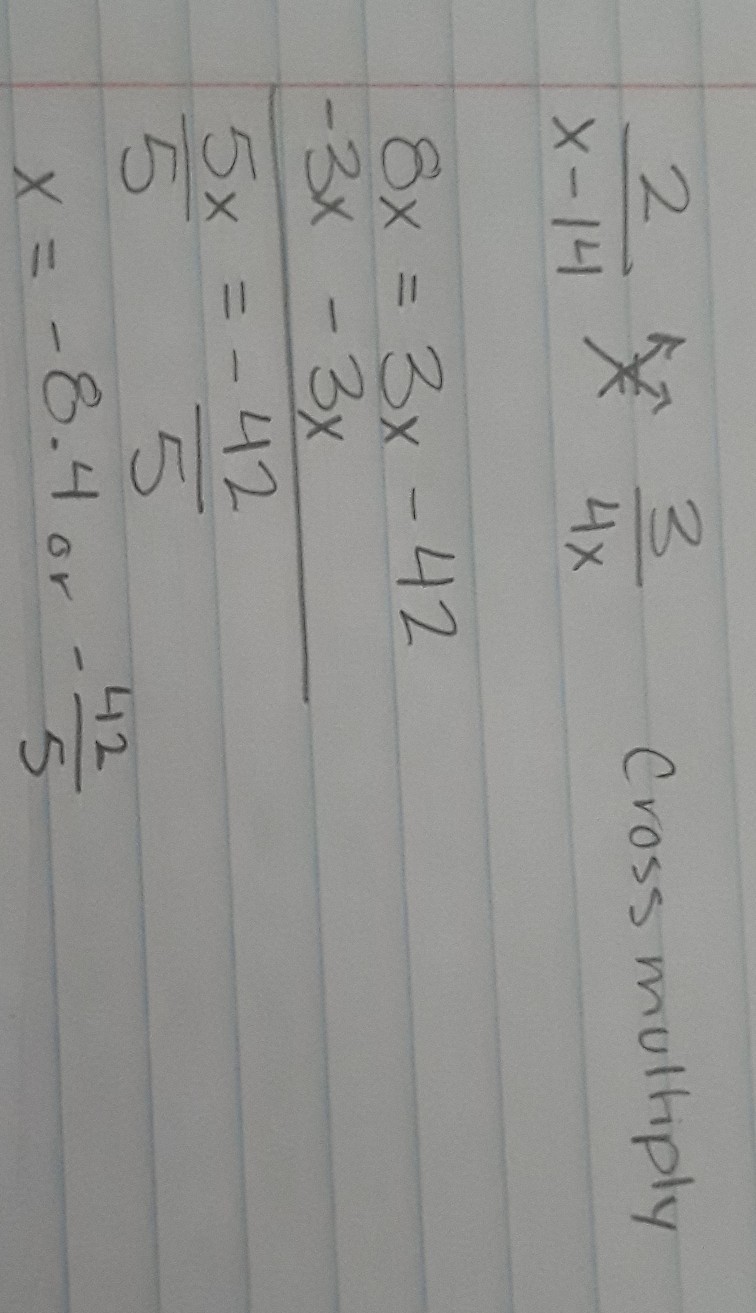 2/(x-14) 3/(4x) Cross multiply
8x = 3x - 42
-3x -3x
5x = -42
5 5
x = -8.4 or -42/5